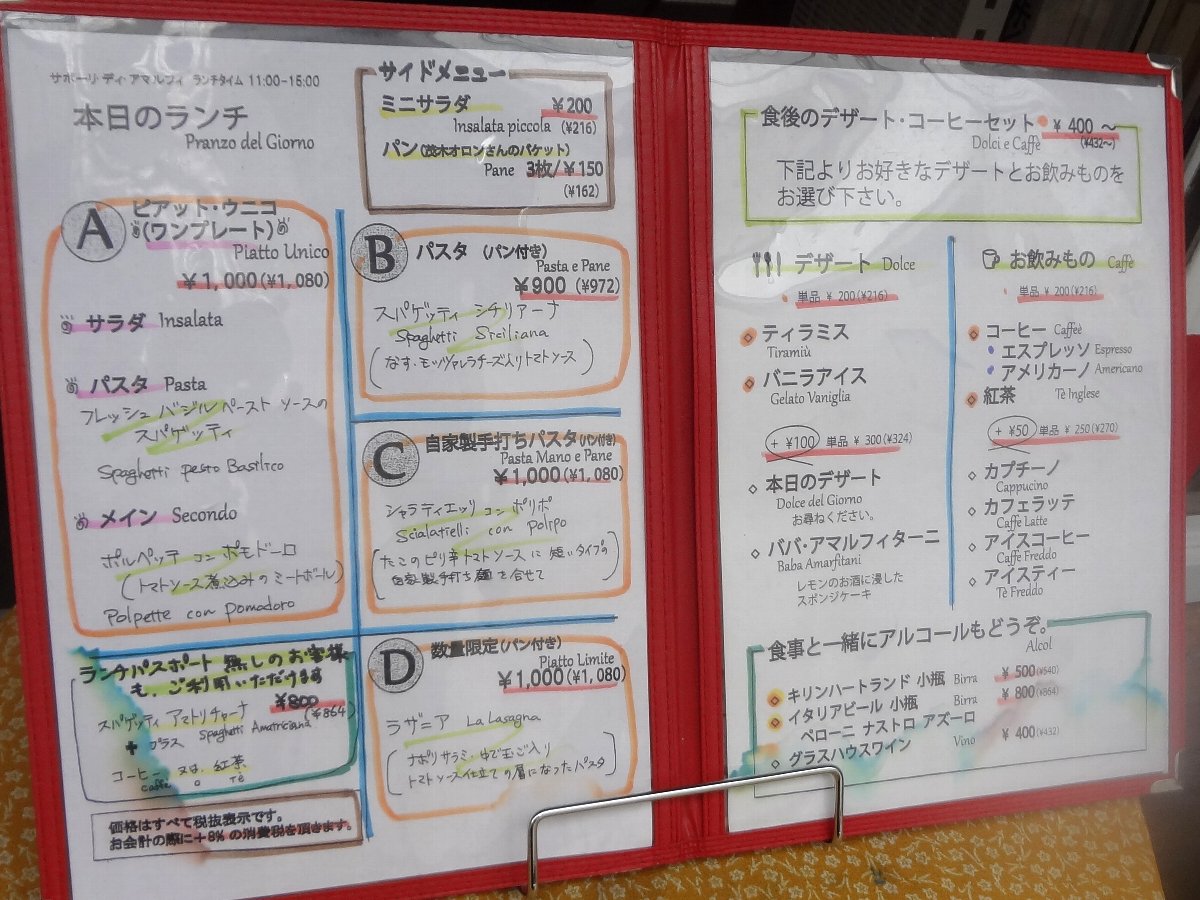 サポーリ ディ アマルフィ ランチタイム 11:00-15:00
本日のランチ
Pranzo del Giorno
サイドメニュー
ミニサラダ ¥200
Insalata piccola (¥216)
パン(茂木オロンさんのバケット)
Pane 3枚/¥150
(¥162)
A ピアット・ウニコ
(ワンプレート)
Piatto Unico
¥1,000(¥1,080)
サラダ Insalata
パスタ Pasta
フレッシュ バジルペースト ソースの
スパゲッティ
Spaghetti pesto Basilico
メイン Secondo
ポルペッテ コン ポモドーロ
(トマトソース煮込みのミートボール)
Polpette con pomodoro
B パスタ (パン付き)
Pasta e Pane
¥900 (¥972)
スパゲッティ シチリアーナ
Spaghetti Siciliana
(なす・モッツァレラチーズ入りトマトソース)
C 自家製手打ちパスタ(パン付き)
Pasta Mano e Pane
¥1,000(¥1,080)
シャラティエッリ コン ポリポ
Scialatielli con polipo
(たこのピリ辛トマトソースに 短いタイプの
自家製手打ち麺を合せて
D 数量限定(パン付き)
Piatto Limite
¥1,000(¥1,080)
ラザニア La Lasagna
(ナポリサラミ・ゆで玉ご入り
トマトソース仕立ての層になったパスタ)
ランチパスポート 無しのお客様
も、ご利用いただけます
¥800
(¥864)
スパゲッティ アマトリチャーナ
+ プラス Spaghetti Amatriciana
コーヒー 又は 紅茶
caffe o Tè
価格はすべて税抜表示です。
お会計の際に+8%の消費税を頂きます。
食後のデザート・コーヒーセット ¥400〜
Dolci e Caffè (¥432〜)
下記よりお好きなデザートとお飲みものを
お選び下さい。
デザート Dolce
単品 ¥200(¥216)
ティラミス
Tiramiù
バニラアイス
Gelato Vaniglia
+¥100 単品 ¥300(¥324)
本日のデザート
Dolce del Giorno
お尋ねください。
ババ・アマルフィターニ
Baba Amarfitani
レモンのお酒に浸した
スポンジケーキ
お飲みもの Caffè
単品 ¥200(¥216)
コーヒー Caffeè
エスプレッソ Espresso
アメリカーノ Americano
紅茶 Tè Inglese
+¥50 単品 ¥250(¥270)
カプチーノ
Cappucino
カフェラッテ
Caffè Latte
アイスコーヒー
Caffè Freddo
アイスティー
Tè Freddo
食事と一緒にアルコールもどうぞ。
Alcol
キリンハートランド 小瓶 Birra ¥500(¥540)
イタリアビール 小瓶 Birra ¥800(¥864)
ペローニ ナストロ アズーロ
グラスハウスワイン Vino ¥400(¥432)